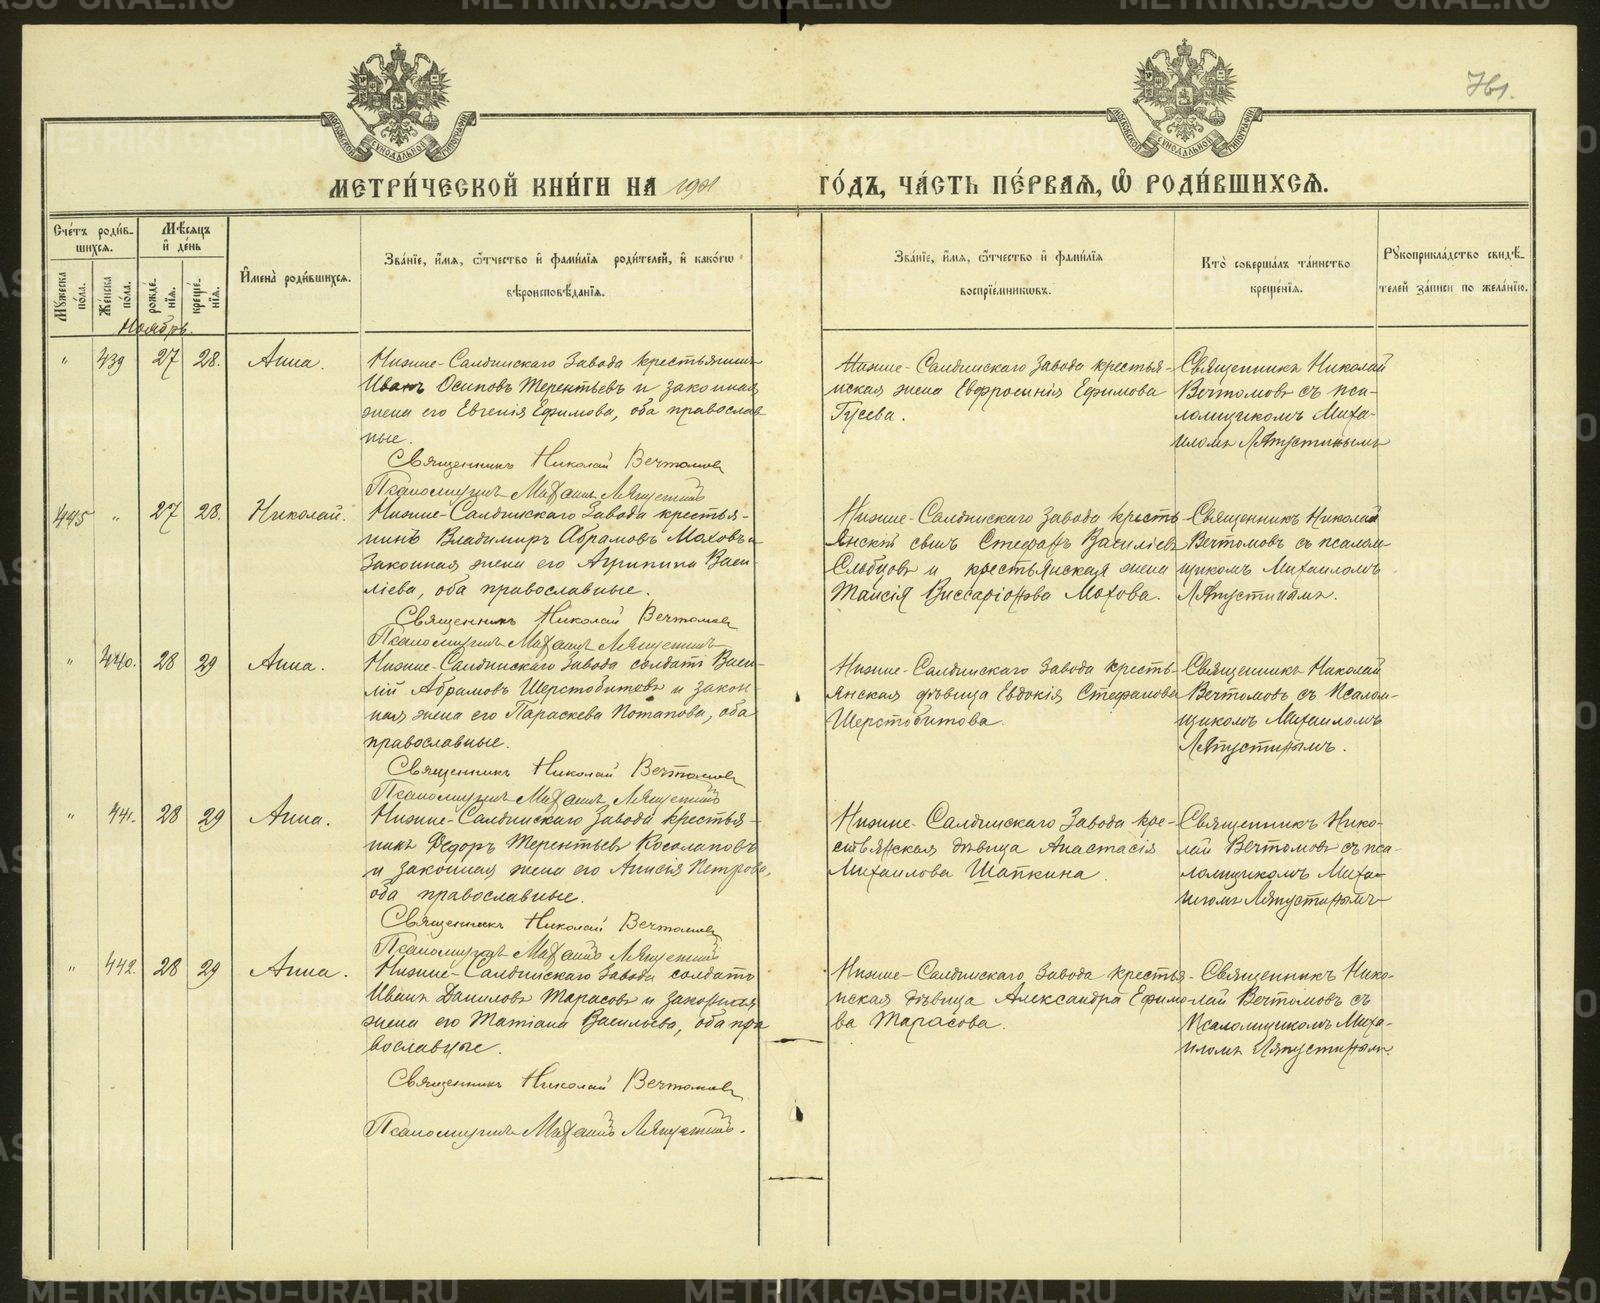 МЕТРИ́ЧЕСКОЙ КНИ́ГИ НА 1901 ГО́ДЪ, ЧА́СТЬ ПЕ́РВАѦ, Ѽ РОДИ́ВШИХСѦ.
Сче́тъ роди́в-
шихсѧ.
Мѣ́сѧцъ
и҆ де́нь
Мꙋ́жеска
по́ла.
Же́нска
по́ла.
рожде́-
нїѧ.
креще́-
нїѧ.
И҆мена̀ роди́вшихсѧ.
Зва́нїе, и҆́мѧ, ѻ҆́тчество и҆ фами́лїѧ роди́телей, и҆ како́гѡ
вѣроисповѣ́данїѧ.
Зва́нїе, и҆́мѧ, ѻ҆́тчество и҆ фами́лїѧ
воспрїе́мникѡвъ.
Кто̀ соверша́лъ та́инство
креще́нїѧ.
Рꙋкоприкла́дство свидѣ́-
телей за́писи по жела́нїю.
Ноябрь.
" 439 27 28. Анна.
Нижне-Салдинскаго Завода крестьянинъ
Иванъ Осиповъ Терентьевъ и законная
жена его Евгенія Ефимова, оба православ
ные.
Священникъ Николай Вечтомовъ
Псаломщикъ Михаилъ Ляпустинъ
Нижне-Салдинскаго Завода крестья-
нская жена Евфросинія Ефимова
Гусева.
Священникъ Николай
Вечтомовъ съ пса-
ломщикомъ Миха-
иломъ Ляпустинымъ
445 " 27 28. Николай.
Нижне-Салдинскаго Завода крестья-
нинъ Владимиръ Абрамовъ Моховъ и
законная жена его Агрипина Васи-
ліева, оба православные.
Священникъ Николай Вечтомовъ
Псаломщикъ Михаилъ Ляпустинъ
Нижне-Салдинскаго Завода кресть
янскій сынъ Стефанъ Василіевъ
и крестьянская жена
Таисія Виссаріонова Мохова.
Священникъ Николай
Вечтомовъ съ псалом-
щикомъ Михаиломъ
Ляпустинымъ.
" 440. 28 29 Анна.
Нижне-Салдинскаго Завода солдатъ Васи-
лій Абрамовъ Шерстобитовъ и закон-
ная жена его Параскева Потапова, оба
православные.
Священникъ Николай Вечтомовъ
Псаломщикъ Михаилъ Ляпустинъ
Нижне-Салдинскаго Завода кресть-
янская дѣвица Евдокія Стефанова
Шерстобитова.
Священникъ Николай
Вечтомовъ съ псалом-
щикомъ Михаиломъ
Ляпустинымъ.
" 441. 28 29 Анна.
Нижне-Салдинскаго Завода крестья-
нинъ Федоръ Терентьевъ Косолаповъ
и законная жена его Анисія Петрова,
оба православные.
Священникъ Николай Вечтомовъ
Псаломщикъ Михаилъ Ляпустинъ
Нижне-Салдинскаго Завода кре-
стьянская дѣвица Анастасія
Михаилова Шапкина.
Священникъ Нико-
лай Вечтомовъ съ пса-
ломщикомъ Миха-
иломъ Ляпустинымъ
" 442. 28 29 Анна.
Нижне-Салдинскаго Завода солдатъ
Иванъ Даниловъ Тарасовъ и законная
жена его Татіана Васильева, оба пра
вославные.
Священникъ Николай Вечтомовъ
Псаломщикъ Михаилъ Ляпустинъ.
Нижне-Салдинскаго Завода крестья-
нская дѣвица Александра Ефимо-
ва Тарасова.
Священникъ Нико-
лай Вечтомовъ съ
псаломщикомъ Миха-
иломъ Ляпустинымъ.
METRIKI.GASO-URAL.RU